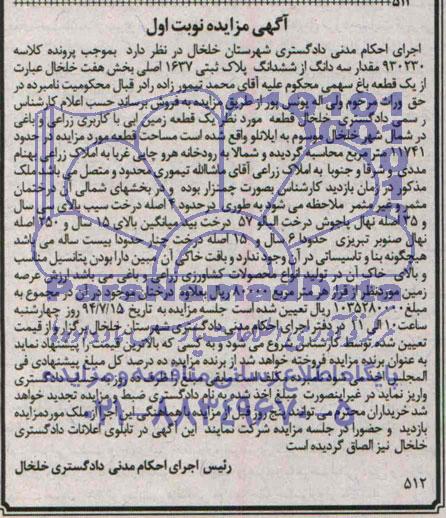 ۵۱۱
آگهی مزایده نوبت اول
اجرای احکام مدنی دادگستری شهرستان خلخال در نظر دارد بموجب پرونده کلاسه
۹۳۰۲۳۰ مقدار سه دانگ از ششدانگ پلاک ثبتی ۱۶۳۷ اصلی بخش هفت خلخال عبارت
از یک قطعه باغ سهمی محکوم علیه آقای محمد تیمور زاده رادر قبال محکومیت نامبرده در
حق وراث مرحوم ولی اله یونس پور از طریق مزایده به فروش برساند حسب اعلام کارشناس
رسمی دادگستری خلخال قطعه مورد نظر یک قطعه زمین آبی با کاربری زراعی و باغی
در شمال شهر خلخال موسوم به ایلانلو واقع شده است مساحت قطعه مورد مزایده در حدود
۱۱۷۴۱ متر مربع محاسبه گردیده و شمالا به رودخانه هرو چایی غربا به املاک زراعی بهنام
مددی و شرقا و جنوبا به املاک زراعی آقای ماشاالله تیموری محدود و متصل می باشد ملک
مذکور در زمان بازدید کارشناس بصورت چمنزار بوده و در بخشهای شمالی آن درختان
مثمر و غیر مثمر ملاحظه می شود به طوری که درحدود اصله درخت سیب بالای سی سال
و ۳۵ اصله نهال پاجوش درخت آلبالو ۵۷ درخت بید میانگین بالای ۱۵ سال و ۲۵۰ اصله
نهال صنوبر تبریزی حدود سال و ۱۵ اصله درخت چنار حدودا بیست ساله می باشد
هیچگونه بنا و تاسیساتی در آن وجود ندارد و بافت خاکی آن مبین دارا بودن پتانسیل مناسب
و بالای خاک آن در تولید انواع محصولات کشاورزی زراعی و باغی می باشد ارزش عرصه
زمین موردنظر از قرار هر متر مربع ۸۰۰۰۰ ریال بعلاوه درختان موجود در آن در مجموع به
مبلغ ریال تعیین شده است جلسه مزایده به تاریخ ۹۴/۷/۱۵ روز چهارشنبه
ساعت ۱۰ الی ۱۱ در دفتر اجرای احکام مدنی دادگستری شهرستان خلخال برگزار و از قیمت
تعیین شده توسط کارشناس شروع می شود و به کسانی که بالاترین قیمت را پیشنهاد نماید
به عنوان برنده مزایده فروخته خواهد شد از برنده مزایده ده درصد کل مبلغ پیشنهادی فی
المجلس اخذ می شود
واریز نماید در غیراینصورت مبلغ اخذ شده به نام دادگستری ضبط و مزایده تجدید خواهد
شد خریداران محترم می توانند پنج روز قبل از مزایده با هماهنگی این اجرا از ملک موردمزایده
بازدید و حضورا در جلسه مزایده شرکت نمایند این آگهی در تابلوی اعلانات دادگستری
خلخال نیز الصاق گردیده است
رئیس اجرای احکام مدنی دادگستری خلخال
۵۱۲
پایگاه اطلاع رسانی مناقصه و مزایده